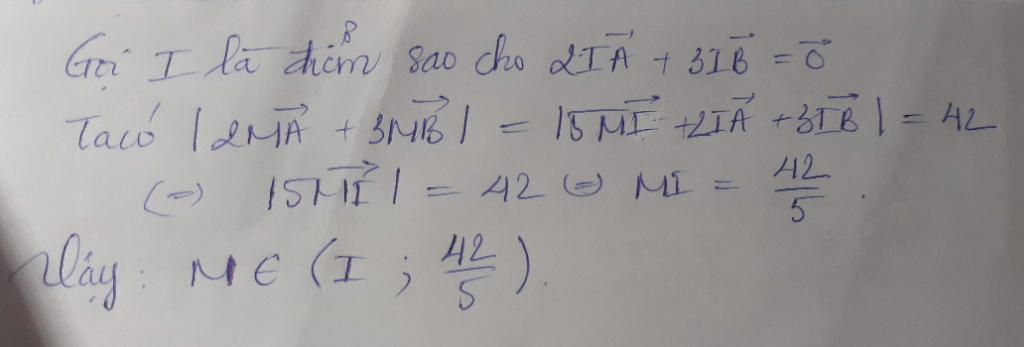 Gọi I là điểm sao cho 2IA⃗ + 3IB⃗ = 0⃗
Ta có |2MA⃗ + 3MB⃗| = |5MI⃗ + 2IA⃗ + 3IB⃗| = 42
(=) |5MI⃗| = 42 (=) MI = 42/5.
Vậy: M ∈ (I ; 42/5).